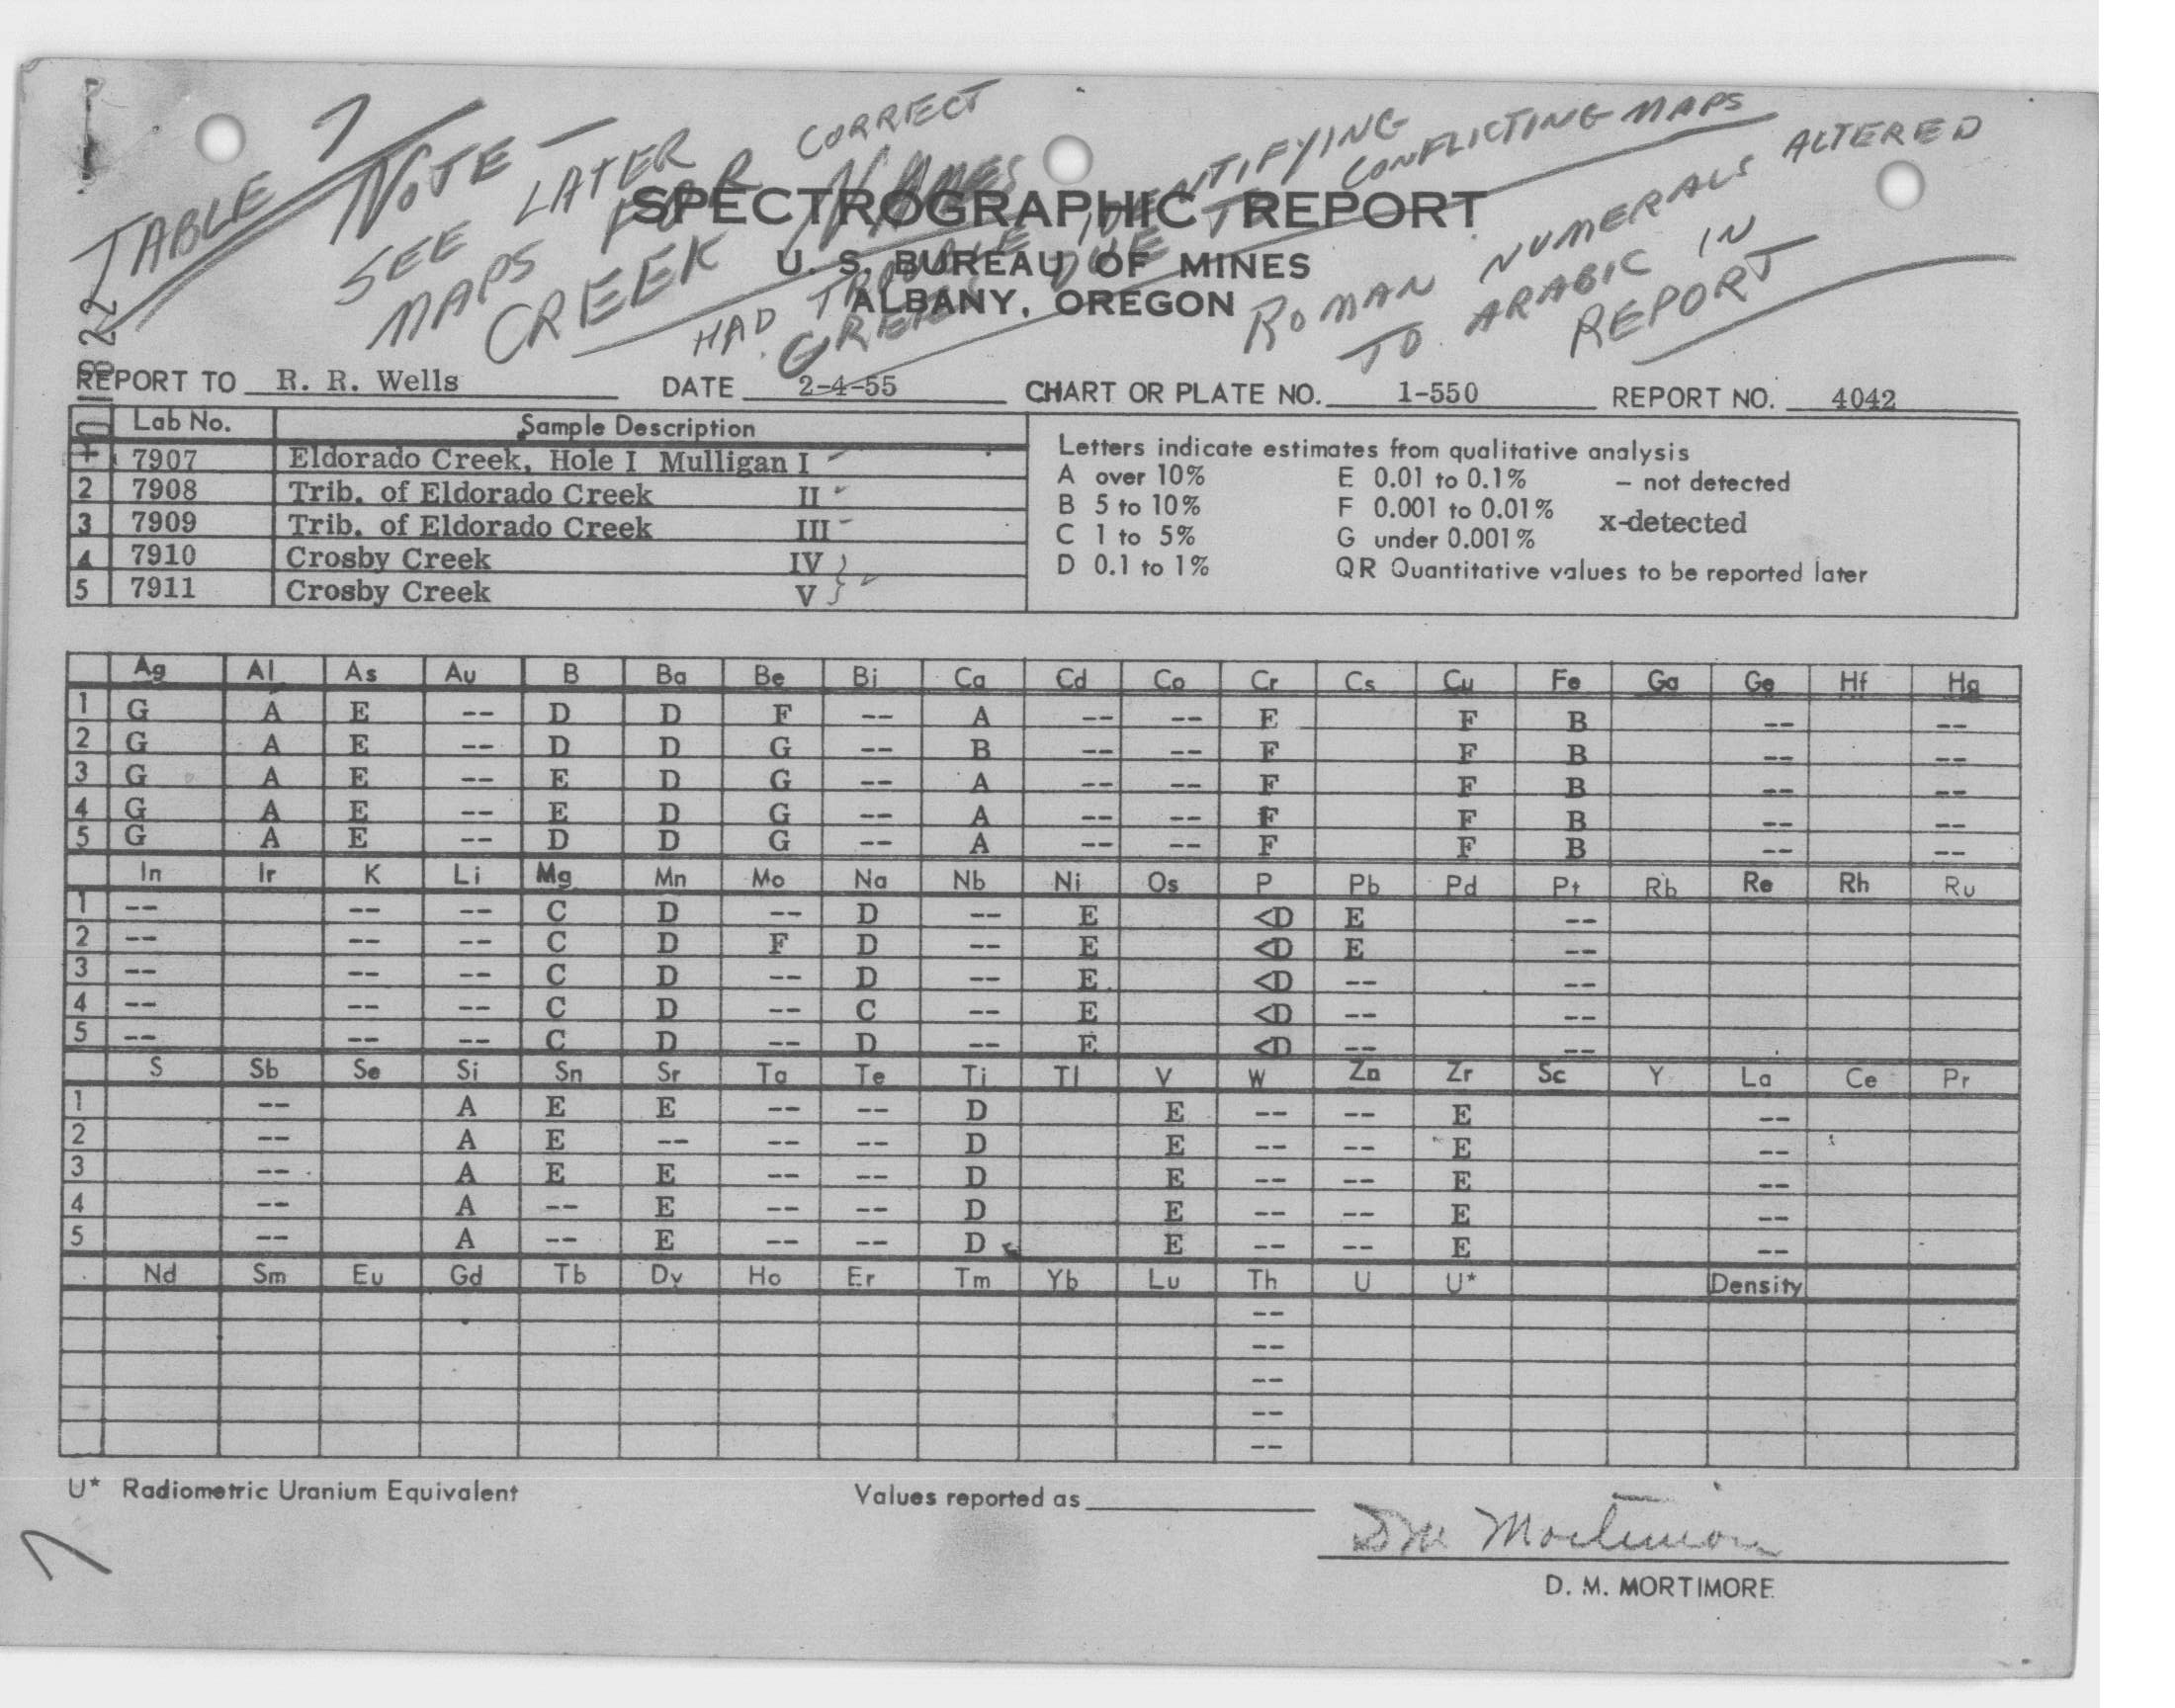 TABLE 7
NOTE —
SEE LATER
MAPS FOR CORRECT
CREEK NAMES
HAD TROUBLE IDENTIFYING
CREEKS DUE TO CONFLICTING MAPS
ROMAN NUMERALS ALTERED
TO ARABIC IN
REPORT
SPECTROGRAPHIC REPORT
U. S. BUREAU OF MINES
ALBANY, OREGON
REPORT TO R. R. Wells DATE 2-4-55 CHART OR PLATE NO. 1-550 REPORT NO. 4042
Lab No. Sample Description
1 7907 Eldorado Creek, Hole I Mulligan I
2 7908 Trib. of Eldorado Creek II
3 7909 Trib. of Eldorado Creek III
4 7910 Crosby Creek IV
5 7911 Crosby Creek V
Letters indicate estimates from qualitative analysis
A over 10% E 0.01 to 0.1% – not detected
B 5 to 10% F 0.001 to 0.01% x-detected
C 1 to 5% G under 0.001%
D 0.1 to 1% QR Quantitative values to be reported later
Ag Al As Au B Ba Be Bi Ca Cd Co Cr Cs Cu Fe Ga Ge Hf Hg
1 G A E -- D D F -- A -- -- E F B -- --
2 G A E -- D D G -- B -- -- F F B -- --
3 G A E -- E D G -- A -- -- F F B -- --
4 G A E -- E D G -- A -- -- F F B -- --
5 G A E -- D D G -- A -- -- F F B -- --
In Ir K Li Mg Mn Mo Na Nb Ni Os P Pb Pd Pt Rb Re Rh Ru
1 -- -- -- C D -- D -- E <D E --
2 -- -- -- C D F D -- E <D E --
3 -- -- -- C D -- D -- E <D -- --
4 -- -- -- C D -- C -- E <D -- --
5 -- -- -- C D -- D -- E <D -- --
S Sb Se Si Sn Sr Ta Te Ti Tl V W Zn Zr Sc Y La Ce Pr
1 -- A E E -- -- D E -- -- E --
2 -- A E -- -- -- D E -- -- E --
3 -- A E E -- -- D E -- -- E --
4 -- A -- E -- -- D E -- -- E --
5 -- A -- E -- -- D E -- -- E --
Nd Sm Eu Gd Tb Dy Ho Er Tm Yb Lu Th U U* Density
--
--
--
--
--
U* Radiometric Uranium Equivalent Values reported as
D M Mortimore
D. M. MORTIMORE
7